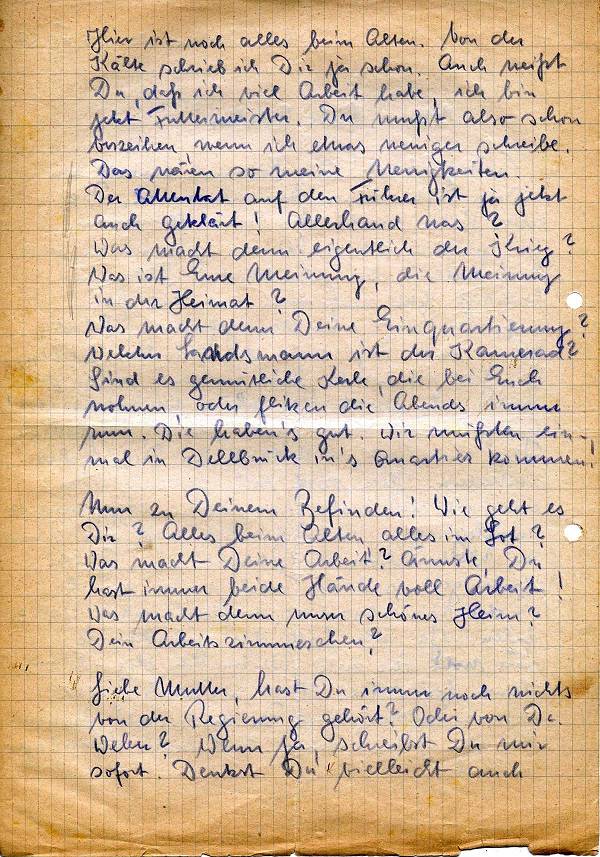 Hier ist noch alles beim Alten. Von der
Kälte schrieb ich Dir ja schon. Auch weißt
Du, daß ich viel Arbeit habe, ich bin
jetzt Futtermeister. Du mußt also schon
verzeihen wenn ich etwas weniger schreibe.
Das wären so meine Neuigkeiten.
Das Attentat auf den Führer ist ja jetzt
auch geklärt! Allerhand was?
Was macht denn eigentlich der Krieg?
Was ist Eure Meinung, die Meinung
in der Heimat?
Was macht denn Deine Einquartierung?
Welcher Landsmann ist der Kamerad?
Sind es gemütliche Kerle, die bei Euch
wohnen, oder die Abends immer
rum. Die haben's gut. Wir müßten ein-
mal in Dellbrück in's Quartier kommen!
Nun zu Deinem Befinden! Wie geht es
Dir? Alles beim Alten alles im Lot?
Was macht Deine Arbeit? Ärmste, Du
hast immer beide Hände voll Arbeit!
Was macht denn unser schönes Heim?
Dein Arbeitszimmerchen?
Liebe Mutter, hast Du immer noch nichts
von der Regierung gehört? Oder von Dr.
Weber? Wenn ja, schreibst Du mir
sofort. Denkst Du vielleicht auch